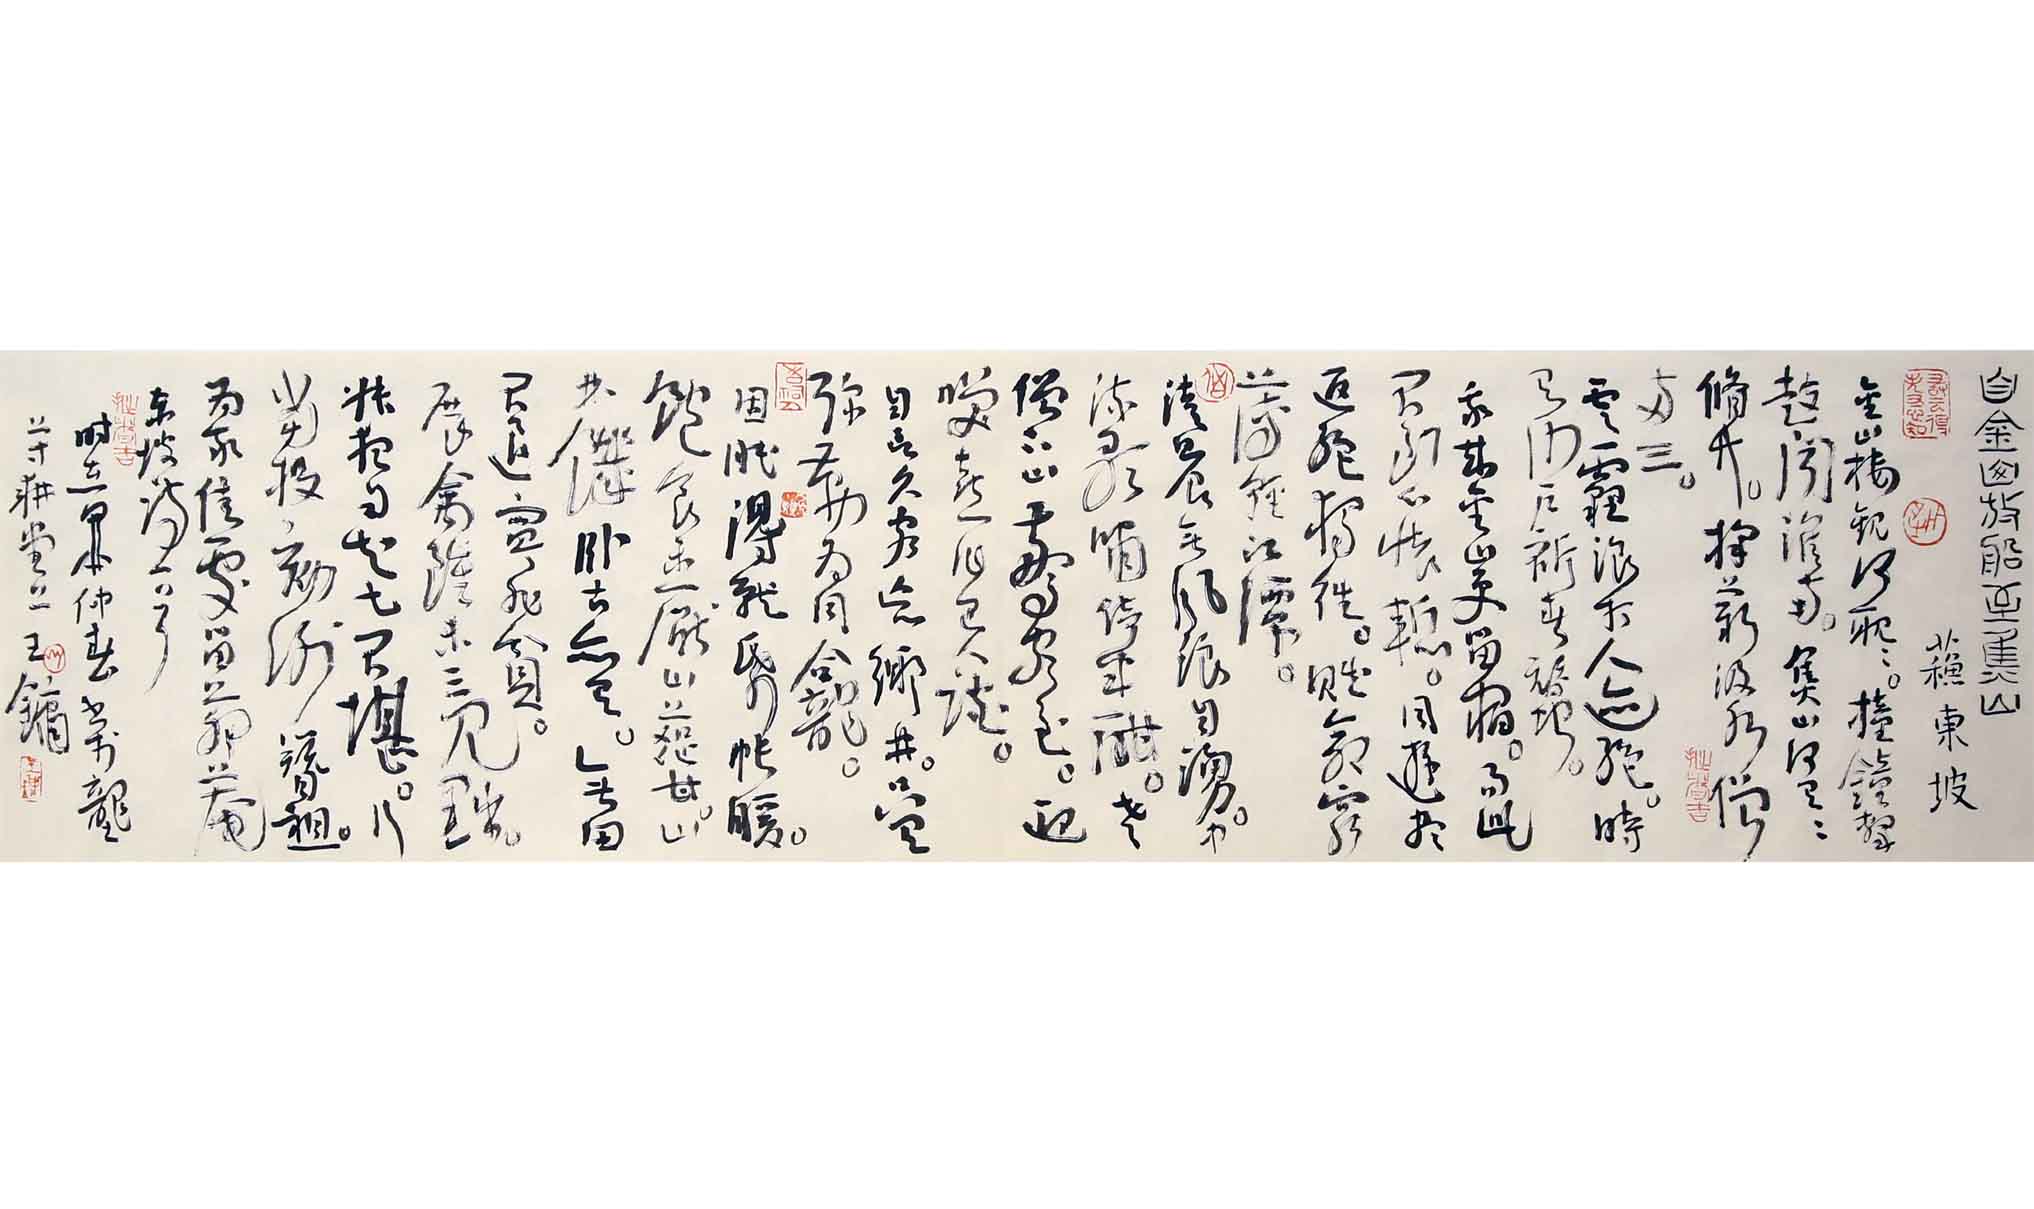 自金山放船至焦山
蘇東坡
金山樓觀何耽〻。撞鐘擊
鼓聞淮南。焦山何有〻
脩竹。採薪汲水僧
兩三。
雲霾浪打人迹絕。時
有沙戶祈春蠶。
我來金山更留宿。而此
不到心懷慙。同遊盡
返絕獨往。賦命窮
薄輕江潭。
清晨無風浪自湧。中
流歌嘯倚半酣。老
僧下山驚客至。迎
笑喜作巴人談。
自言久客忘鄉井。只有
彌勒為同龕。
困眠得就紙帳暖。
飽食未厭山蔬甘。山
林飢臥古亦有。無田
不退寧非貪。
展禽雖未三見黜。
叔夜自知七不堪。行
當投劾謝簪組。
為我佳處留茅庵
東坡詩一首
時在仲春龍
耕堂上王鏞